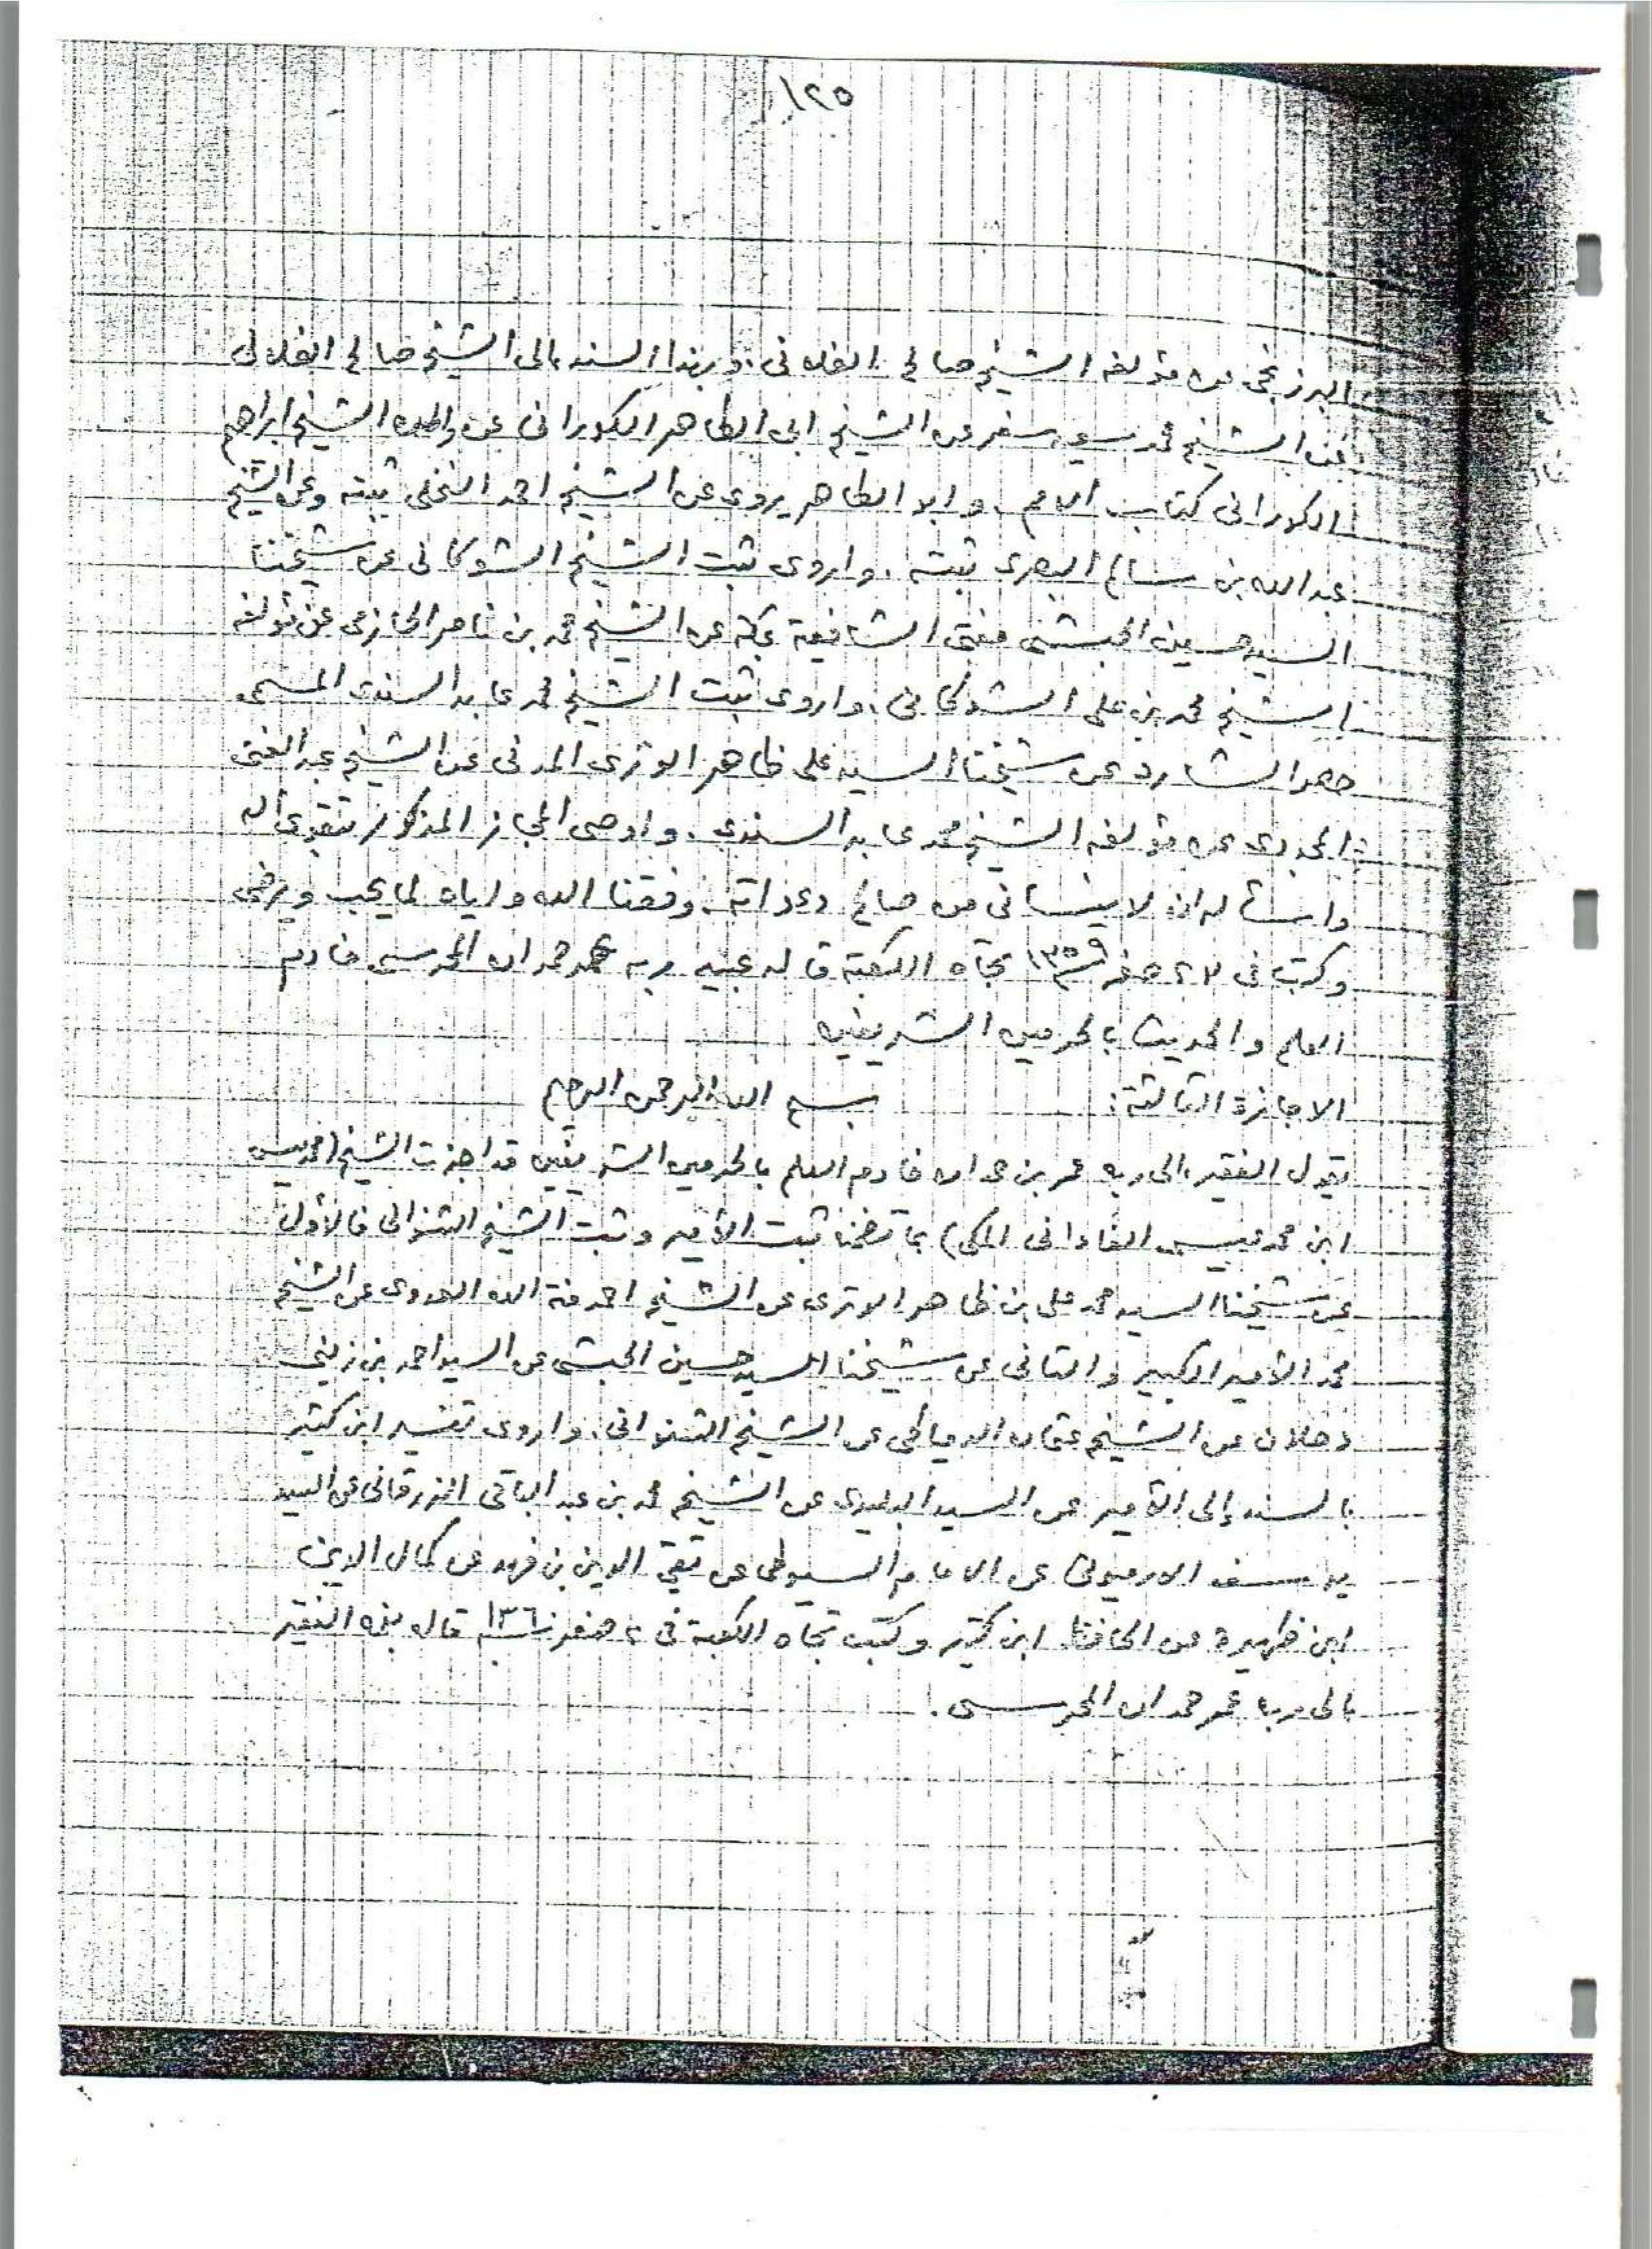 ١٢٥
البرزنجي عن مؤلفه الشيخ صالح الفلاني، وبهذا السند إلى الشيخ صالح الفلاني
عن الشيخ محمد سعيد سفر عن الشيخ ابى الطاهر الكوراني عن والده الشيخ ابراهيم
الكوراني كتاب الامم. وابو الطاهر يروى عن الشيخ احمد النخلي ثبته وعن الشيخ
عبد الله بن سالم البصرى ثبته. واروى ثبت الشيخ الشوكاني عن شيخنا
السيد حسين الحبشي مفتى الشافعية بمكة عن الشيخ محمد بن ناصر الحازمي عن مؤلفه
الشيخ محمد بن على الشوكاني. واروى ثبت الشيخ محمد عابد السندى المسمى
حصر الشارد عن شيخنا السيد على ظاهر الوترى المدني عن الشيخ عبد الغنى
المجددى عن مؤلفه الشيخ محمد عابد السندى. واوصى المجاز المذكور بتقوى الله
واسأله ان لا ينساني من صالح دعواته. وفقنا الله واياه لما يحب ويرضى
وكتب في ٢٣ صفر ١٣٥٩ تجاه الكعبة قاله عبيد ربه عمر حمدان المحرسي خادم
العلم والحديث بالحرمين الشريفين
الاجازة الثالثة: بسم الله الرحمن الرحيم
يقول الفقير الى ربه عمر بن حمدان خادم العلم بالحرمين الشريفين قد اجزت الشيخ (محمد يس
ابن محمد عيسى الفاداني المكي) بما تضمنه ثبت الأمير وثبت الشيخ الشنواني فالأول
عن شيخنا السيد محمد على بن ظاهر الوترى عن الشيخ احمد منة الله العدوى عن الشيخ
محمد الأمير الكبير والثاني عن شيخنا السيد حسين الحبشي عن السيد احمد بن زيني
دحلان عن الشيخ عثمان الدمياطي عن الشيخ الشنواني. واروى تفسير ابن كثير
بالسند إلى الأمير عن السيد البليدى عن الشيخ محمد بن عبد الباقي الزرقاني عن السيد
يوسف الارميوني عن الامام السيوطي عن تقي الدين بن فهد عن كمال الدين
ابن ظهيرة عن الحافظ ابن كثير وكتب تجاه الكعبة في ٢ صفر قاله بفمه الفقير
الى ربه عمر حمدان المحرسي.